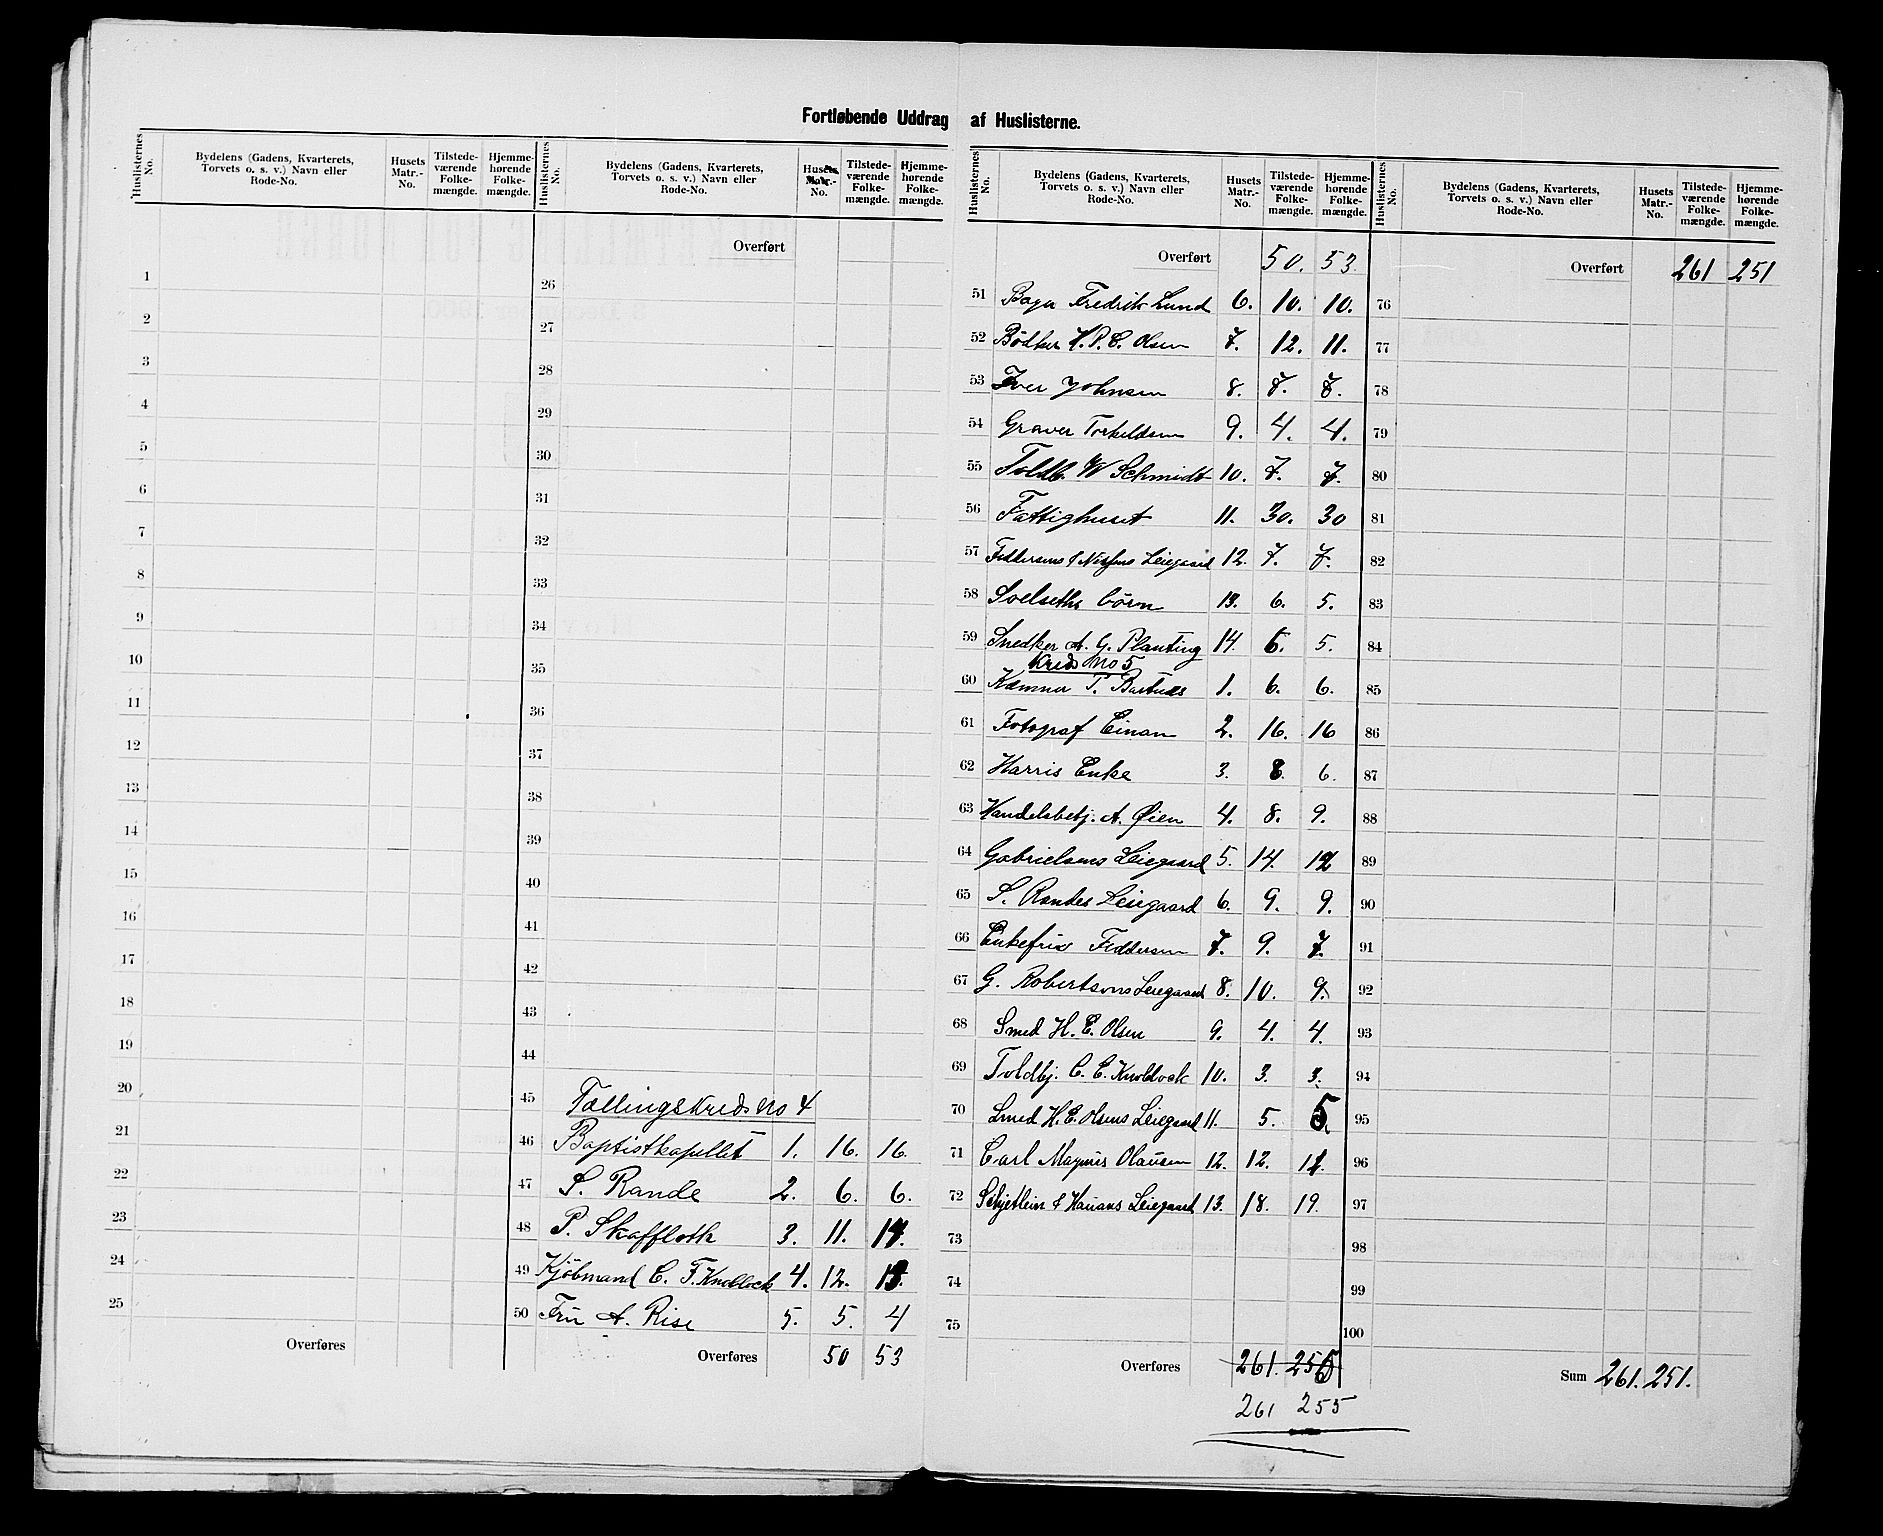 Fortløbende Uddrag af Huslisterne.
Huslisternes No. Bydelens (Gadens, Kvarterets, Torvets o. s. v.) Navn eller Rode-No. Husets Matr.-No. Tilstedeværende Folkemængde. Hjemmehørende Folkemængde.
1
2
3
4
5
6
7
8
9
10
11
12
13
14
15
16
17
18
19
20
21
22
23
24
25
Overføres
Huslisternes No. Bydelens (Gadens, Kvarterets, Torvets o. s. v.) Navn eller Rode-No. Husets Matr.-No. Tilstedeværende Folkemængde. Hjemmehørende Folkemængde.
Overført
26
27
28
29
30
31
32
33
34
35
36
37
38
39
40
41
42
43
44
45 Tællingskreds no 4
46 Baptistkapellet 1. 16. 16.
47 S. Rande 2. 6. 6.
48 P. Skaffloth 3. 11. 14.
49 Kjöbmand C. F. Knoblock 4. 12. 13.
50 Fru A. Rise 5. 5. 4
Overføres 50 53
Huslisternes No. Bydelens (Gadens, Kvarterets, Torvets o. s. v.) Navn eller Rode-No. Husets Matr.-No. Tilstedeværende Folkemængde. Hjemmehørende Folkemængde.
Overført 50. 53.
51 Fredrik Lund 6. 10. 10.
52 Bödker H. P. E. Olsen 7. 12. 11.
53 Iver Johnsen 8. 7. 7.
54 Graver Torkeldsen 9. 4. 4.
55 Toldb. W Schmidt 10. 7. 7.
56 Fattighuset 11. 30. 30
57 Feddersens & Nissens Leiegaard 12. 7. 7.
58 Solseths börn 13. 6. 5.
59 Snedker A. G. Planting 14. 6. 5.
Kreds No 5
60 Kæmner P. 1. 6. 6.
61 Fotograf Einan 2. 16. 16
62 Harris Enke 3. 8. 6.
63 Handelsbetj. A. Øien 4. 8. 9.
64 Gabrielsens Leiegaard 5. 14. 12
65 S. Randes Leiegaard 6. 9. 9.
66 Enkefru Feddersen 7. 9. 7.
67 G. Robertsons Leiegaard 8. 10. 9.
68 Smed H. E. Olsen 9. 4. 4.
69 Toldbj. C. E. Knoblock 10. 3. 3.
70 Smed H. E. Olsens Leiegaard 11. 5. 5.
71 Carl Magnus Olausen 12. 12. 12.
72 Schjetlein & Hauans Leiegaard 13. 18. 19.
73
74
75
Overføres 261. 255
261 255
Huslisternes No. Bydelens (Gadens, Kvarterets, Torvets o. s. v.) Navn eller Rode-No. Husets Matr.-No. Tilstedeværende Folkemængde. Hjemmehørende Folkemængde.
Overført 261 251
76
77
78
79
80
81
82
83
84
85
86
87
88
89
90
91
92
93
94
95
96
97
98
99
100
Sum 261. 251.